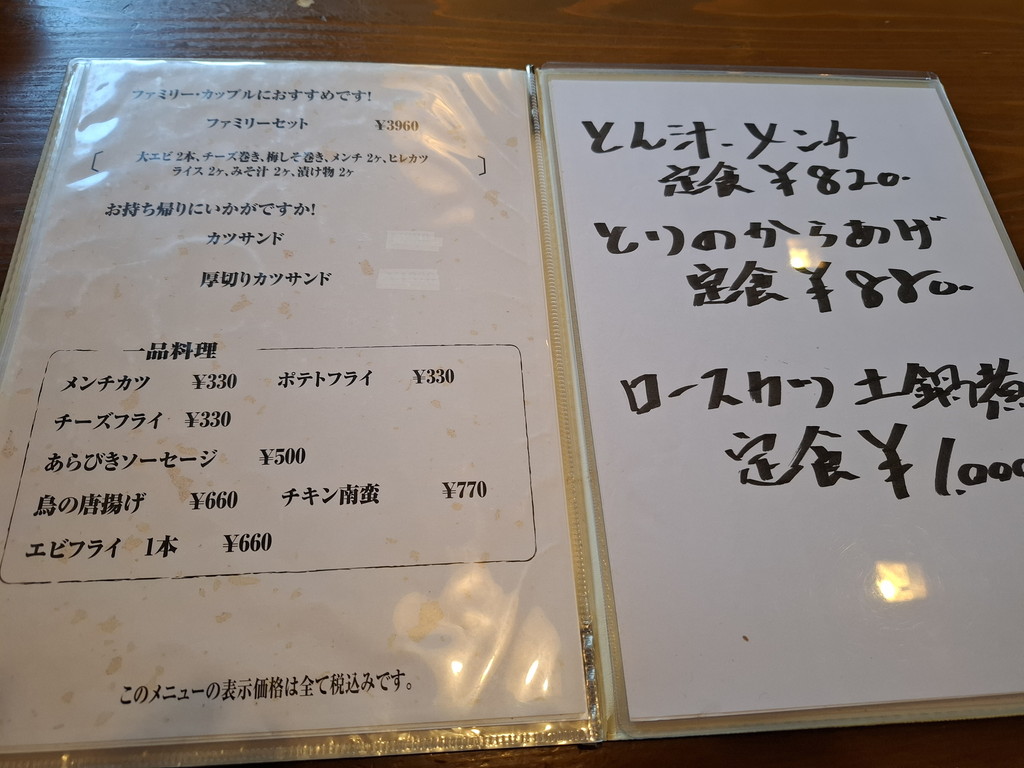 ファミリー・カップルにおすすめです!
ファミリーセット ¥3960
〔 大エビ 2本、チーズ巻き、梅しそ巻き、メンチ 2ヶ、ヒレカツ
ライス 2ヶ、みそ汁 2ヶ、漬け物 2ヶ 〕
お持ち帰りにいかがですか!
カツサンド
厚切りカツサンド
一品料理
メンチカツ ¥330 ポテトフライ ¥330
チーズフライ ¥330
あらびきソーセージ ¥500
鳥の唐揚げ ¥660 チキン南蛮 ¥770
エビフライ 1本 ¥660
このメニューの表示価格は全て税込みです。
とん汁.メンチ
定食¥820.
とりのからあげ
定食¥880.
ロースカツ 土鍋煮
定食¥1,000